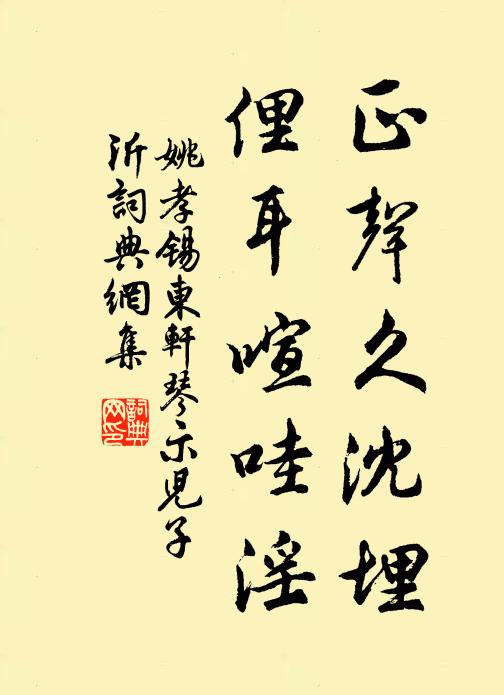 正聲久沈埋
俚耳喧哇淫
姚孝錫東軒琴示兒子
沂詞典網集
詞典
网印